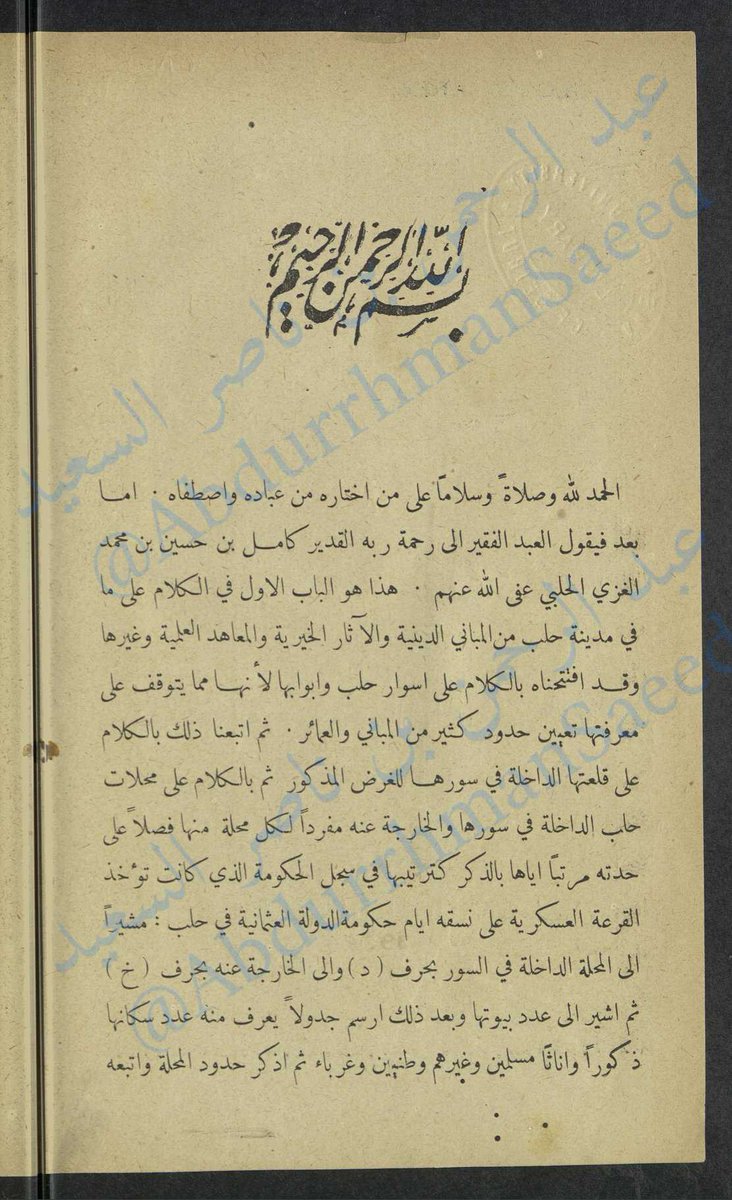 بسم الله الرحمن الرحيم
الحمد لله وصلاةً وسلامًا على من اختاره من عباده واصطفاه · اما
بعد فيقول العبد الفقير الى رحمة ربه القدير كامل بن حسين بن محمد
الغزي الحلبي عفى الله عنهم · هذا هو الباب الاول في الكلام على ما
في مدينة حلب من المباني الدينية والآثار الخيرية والمعاهد العلمية وغيرها
وقد افتتحناه بالكلام على اسوار حلب وابوابها لأنها مما يتوقف على
معرفتها تعيين حدود كثير من المباني والعمائر · ثم اتبعنا ذلك بالكلام
على قلعتها الداخلة في سورها للغرض المذكور ثم بالكلام على محلات
حلب الداخلة في سورها والخارجة عنه مفرداً لكل محلة منها فصلاً على
حدته مرتبًا اياها بالذكر كترتيبها في سجل الحكومة الذي كانت تؤخذ
القرعة العسكرية على نسقه ايام حكومة الدولة العثمانية في حلب : مشيراً
الى المحلة الداخلة في السور بحرف (د) والى الخارجة عنه بحرف (خ)
ثم اشير الى عدد بيوتها وبعد ذلك ارسم جدولاً يعرف منه عدد سكانها
ذكوراً واناثًا مسلمين وغيرهم وطنيين وغرباء ثم اذكر حدود المحلة واتبعه
عبد الرحمن بن ناصر السعيد
@AbdurrhmanSaeed
عبد الرحمن بن ناصر السعيد
@AbdurrhmanSaeed